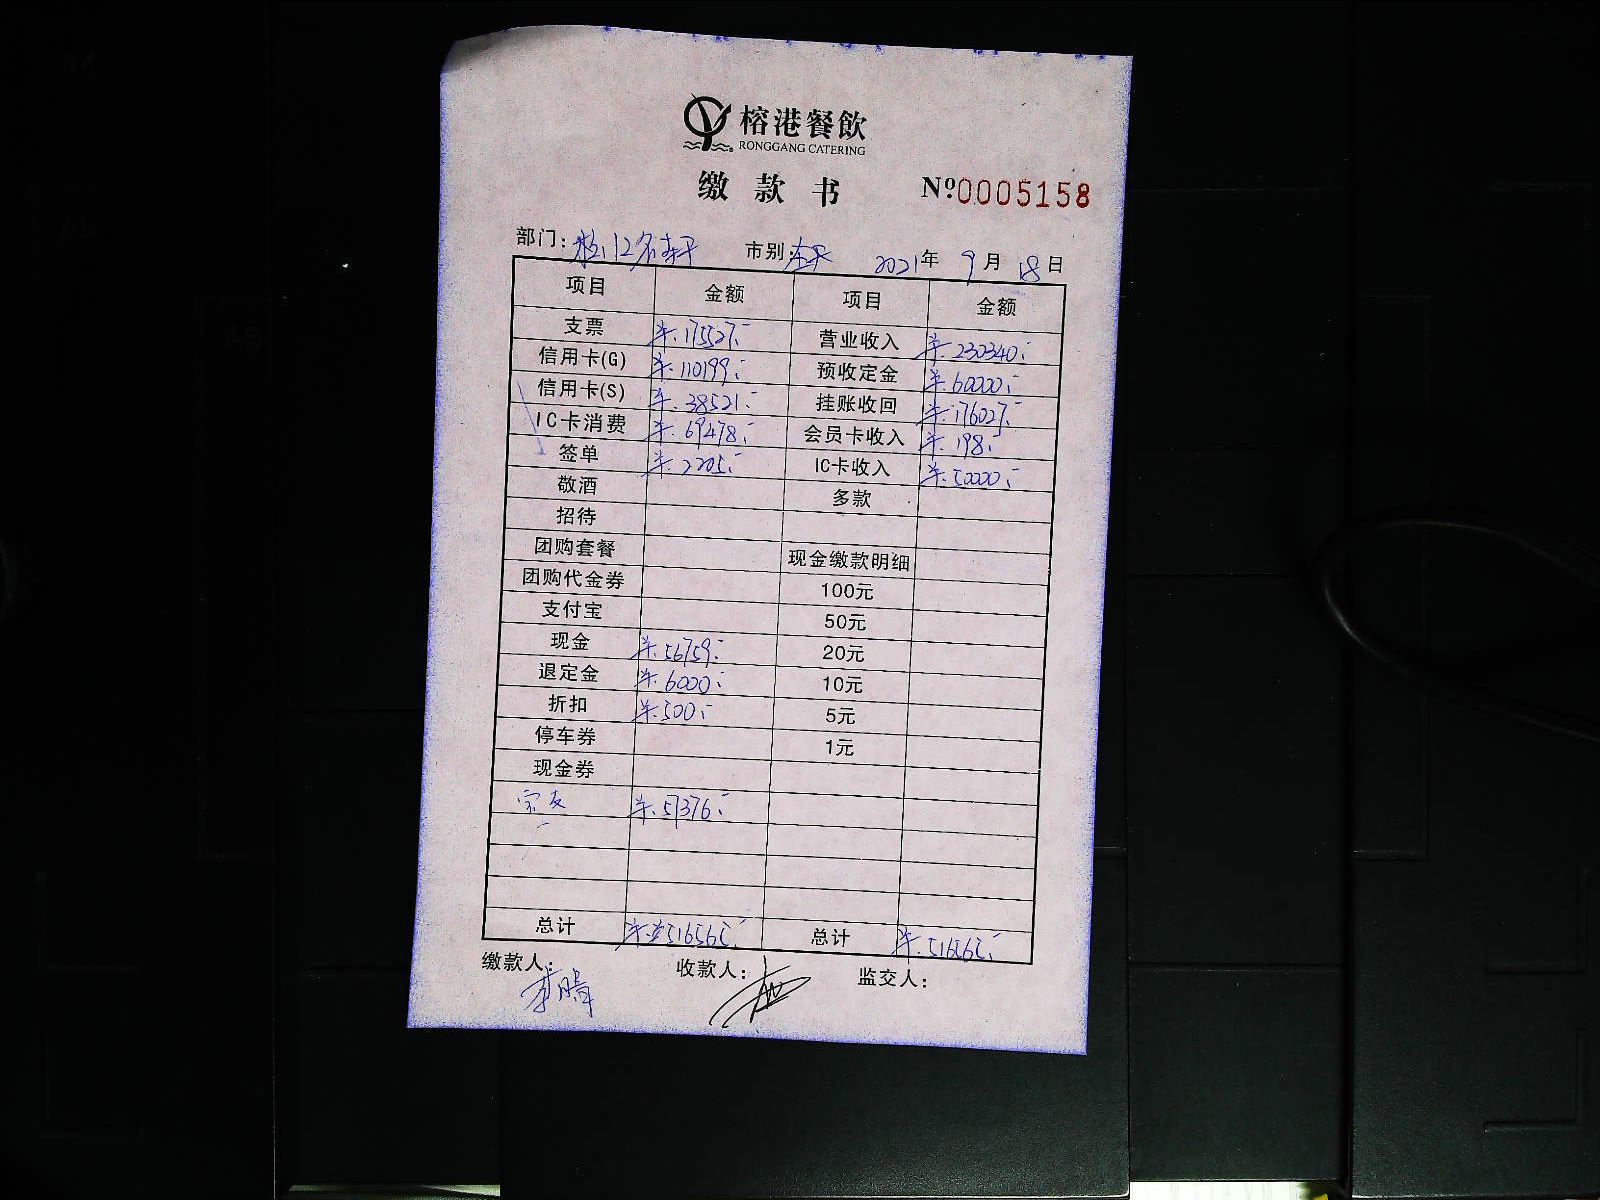 榕港餐飲
RONGGANG CATERING
缴款书 Nº0005158
部门: 市别: 2021年 9月 18日
项目 金额 项目 金额
支票 ¥.175527.- 营业收入 ¥.230340.-
信用卡(G) ¥.110199.- 预收定金 ¥.60000.-
信用卡(S) ¥.38521.- 挂账收回 ¥.176027.-
IC卡消费 ¥.69478.- 会员卡收入 ¥.198.-
签单 ¥.2205.- IC卡收入 ¥.50000.-
敬酒 多款
招待
团购套餐 现金缴款明细
团购代金券 100元
支付宝 50元
现金 ¥.56759.- 20元
退定金 ¥.6000.- 10元
折扣 ¥.500.- 5元
停车券 1元
现金券
¥.57376.-
总计 ¥.516565.- 总计 ¥.516565.-
缴款人: 收款人: 监交人: